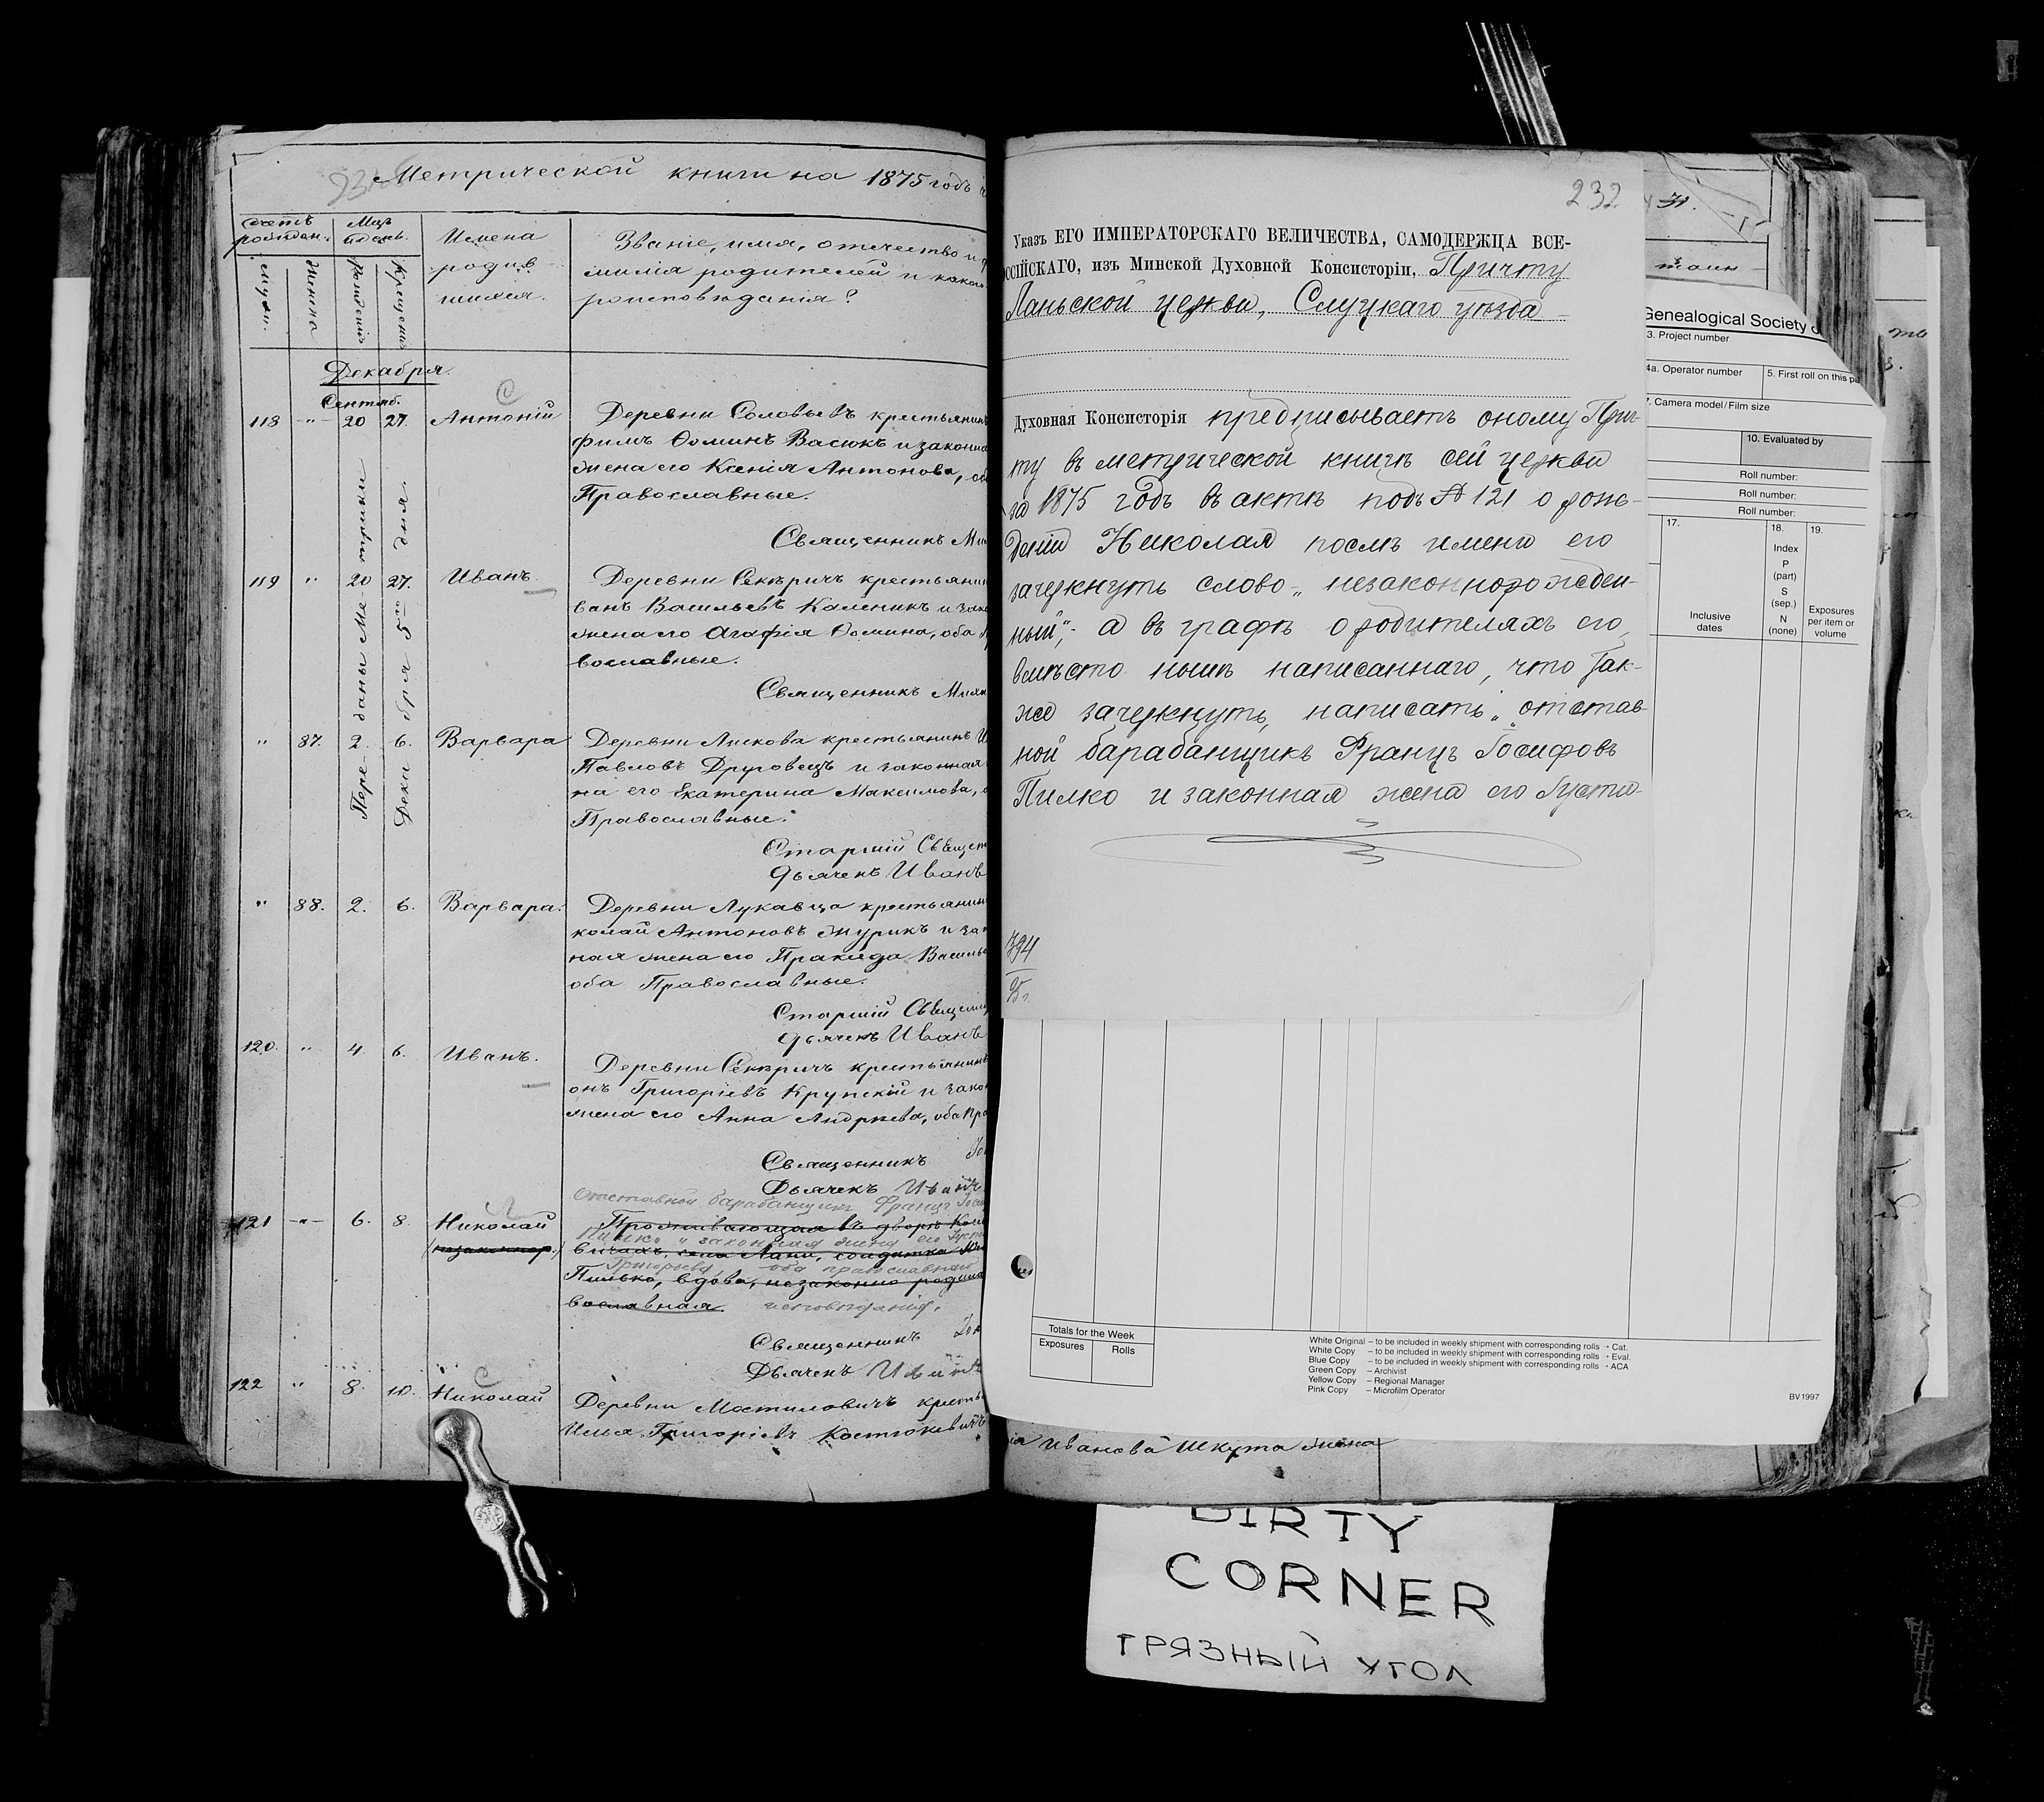 Метрической книги на 1875 годъ
Счетъ родивш.
Мѣс. и день.
Имена родившихся.
Званіе, имя, отчество и фа
милія родителей и какого
вѣроисповѣданія?
муж.
женска
рожденія
крещенія
Декабря.
Сентяб.
118 " 20 27. Антоній
Деревни Соловьевъ крестьянинъ
фимъ Ѳоминъ Васюкъ и законна
жена его Ксенія Антонова, об
Православные.
Священникъ Ми
Переданы Метрики
Декабря 5го дня.
119 " 20 27. Иванъ
Деревни Секѣричъ крестьянин
ванъ Васильевъ Каленикъ и зако
жена его Агафія Ѳомина, оба П
вославные.
Священникъ Миха
" 87. 2. 6. Варвара
Деревни Лискова крестьянинъ И
Павловъ Друговецъ и законная
на его Екатерина Максимова, о
Православные.
Старшій Священ
Дьячекъ Иванъ
" 88. 2. 6. Варвара.
Деревни Лукавца крестьянин
колай Антоновъ Журикъ и зак
ная жена его Пракседа Василье
оба Православные.
Старшій Священ
Дьячекъ Иванъ
120. " 4. 6. Иванъ.
Деревни Секѣричъ крестьянинъ
онъ Григоріевъ Крупскій и зако
жена его Анна Андрѣева, оба Пра
Священникъ
Дьячекъ Иванъ
Отставной барабанщикъ Францъ Іоси
121 " 6. 8. Николай
Проживающая въ дворѣ
(незаконнор.)
Пилко и законная жена его Густи
вичахъ, села Лани, солдатка
Григорьева, оба православнаго
Пилько, вдова, незаконно родила
вославная. исповѣданія.
Священникъ
Дьячекъ Иванъ
122 " 8. 10. Николай
Деревни Мостиловичъ крестья
Илья Григоріевъ Костюкевичъ
232
Указъ ЕГО ИМПЕРАТОРСКАГО ВЕЛИЧЕСТВА, САМОДЕРЖЦА ВСЕ-
РОССІЙСКАГО, изъ Минской Духовной Консисторіи, Причту
Ланьской церкви, Слуцкаго уѣзда
Духовная Консисторія предписываетъ оному Прич-
ту въ метрической книгѣ сей церкви
за 1875 годъ въ актѣ подъ № 121 о рож-
деніи Николая послѣ имени его
зачеркнуть слово „незаконнорожден-
ный", а въ графѣ о родителяхъ его,
вмѣсто нынѣ написаннаго, что так-
же зачеркнуть, написать: „отстав-
ной барабанщикъ Францъ Іосифовъ
Пилко и законная жена его Густи-
394
95 г.
Genealogical Society o
3. Project number
4a. Operator number
5. First roll on this pa
7. Camera model/Film size
10. Evaluated by
Roll number:
Roll number:
Roll number:
17.
18.
19.
Inclusive dates
Index
P
(part)
S
(sep.)
N
(none)
Exposures
per item or
volume
Totals for the Week
Exposures
Rolls
White Original – to be included in weekly shipment with corresponding rolls • Cat.
White Copy – to be included in weekly shipment with corresponding rolls • Eval.
Blue Copy – to be included in weekly shipment with corresponding rolls • ACA
Green Copy – Archivist
Yellow Copy – Regional Manager
Pink Copy – Microfilm Operator
BV1997
Иванова Шкута жена
DIRTY
CORNER
ГРЯЗНЫЙ УГОЛ